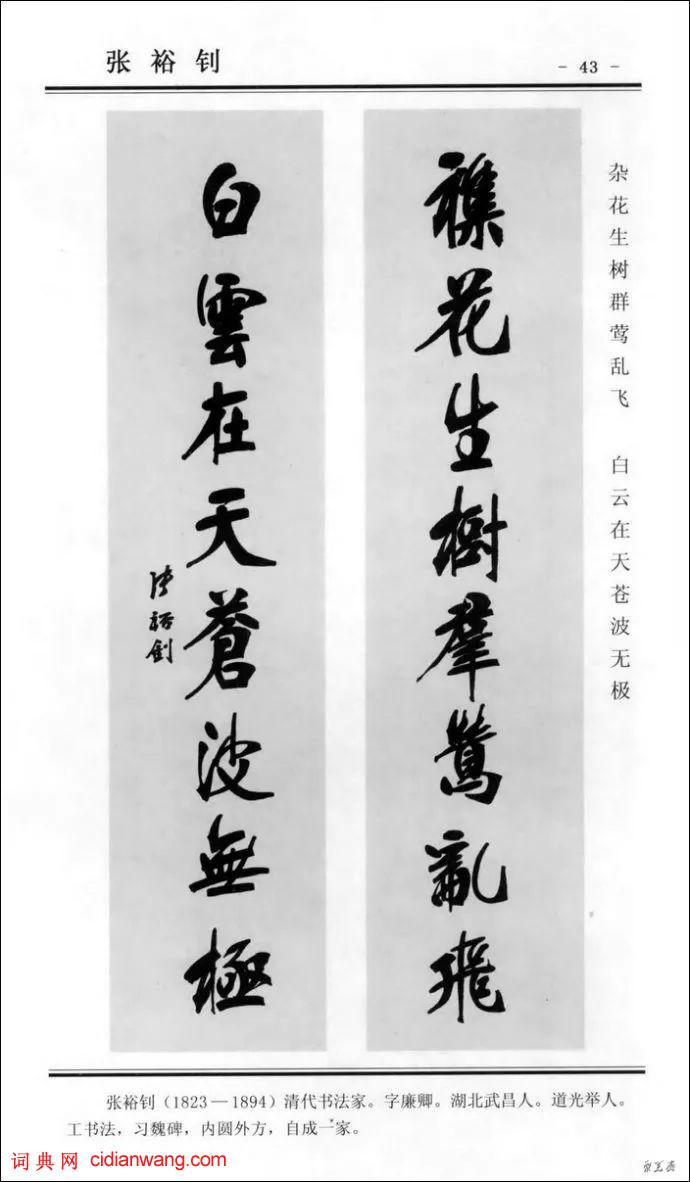 张裕钊
- 43 -
杂花生树群莺乱飞 白云在天苍波无极
襍花生樹羣鶯亂飛
白雲在天蒼波無極
張裕釗
张裕钊（1823—1894）清代书法家。字廉卿。湖北武昌人。道光举人。
工书法，习魏碑，内圆外方，自成一家。
词典网 cidianwang.com